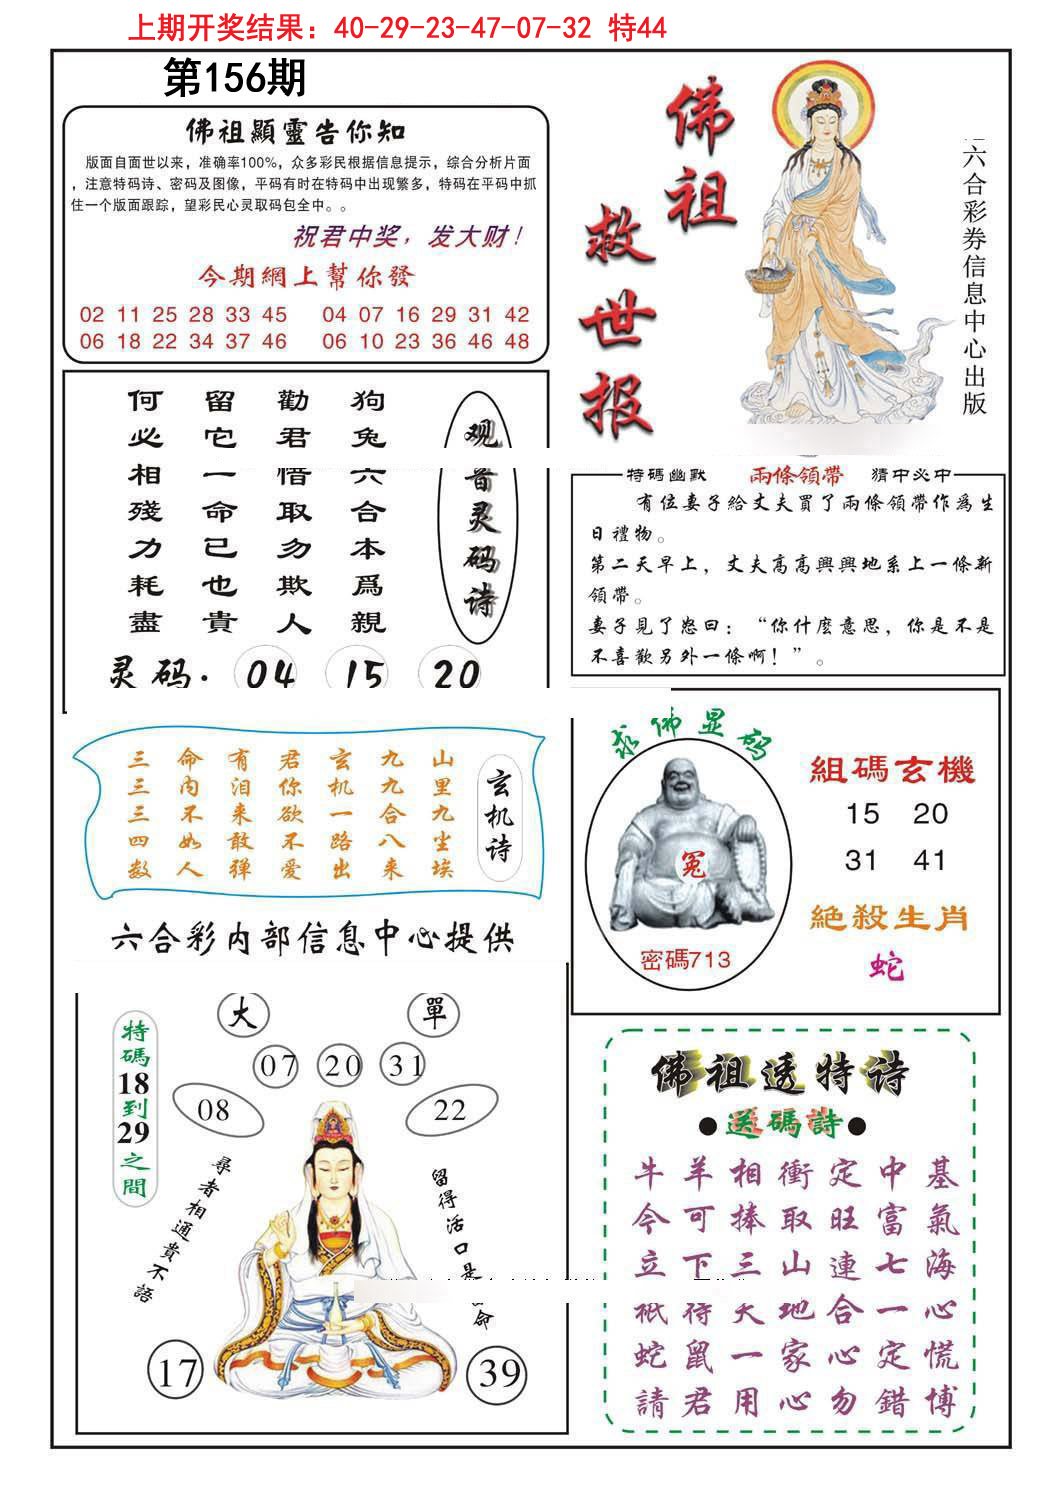 上期开奖结果：40-29-23-47-07-32 特44
第156期
佛祖顯靈告你知
版面自面世以来，准确率100%，众多彩民根据信息提示，综合分析片面
，注意特码诗、密码及图像，平码有时在特码中出现繁多，特码在平码中抓
住一个版面跟踪，望彩民心灵取码包全中。。
祝君中奖，发大财！
今期網上幫你發
02 11 25 28 33 45 04 07 16 29 31 42
06 18 22 34 37 46 06 10 23 36 46 48
佛祖
救世报
六合彩券信息中心出版
观音灵码诗
狗兔六合本爲親
勸君惜取勿欺人
留它一命已也貴
何必相殘力耗盡
灵码. 04 15 20
特碼幽默 兩條領帶 猜中必中
有位妻子給丈夫買了兩條領帶作爲生
日禮物。
第二天早上，丈夫高高興興地系上一條新
領帶。
妻子見了怒曰：“你什麼意思，你是不是
不喜歡另外一條啊！”。
玄机诗
三命有君玄九山
三内泪你机九里
三不来欲一合九
四如敢不路八尘
数人弹爱出来埃
六合彩内部信息中心提供
求佛显码
冤
密碼713
組碼玄機
15 20
31 41
絶殺生肖
蛇
特碼18到29之間
大 單
07 20 31
08 22
尋者相通貴不語
留得活口是命
17 39
佛祖透特诗
●送碼詩●
牛羊相衝定中基
今可捧取旺富氣
立下三山連七海
祇待天地合一心
蛇鼠一家心定慌
請君用心勿錯博